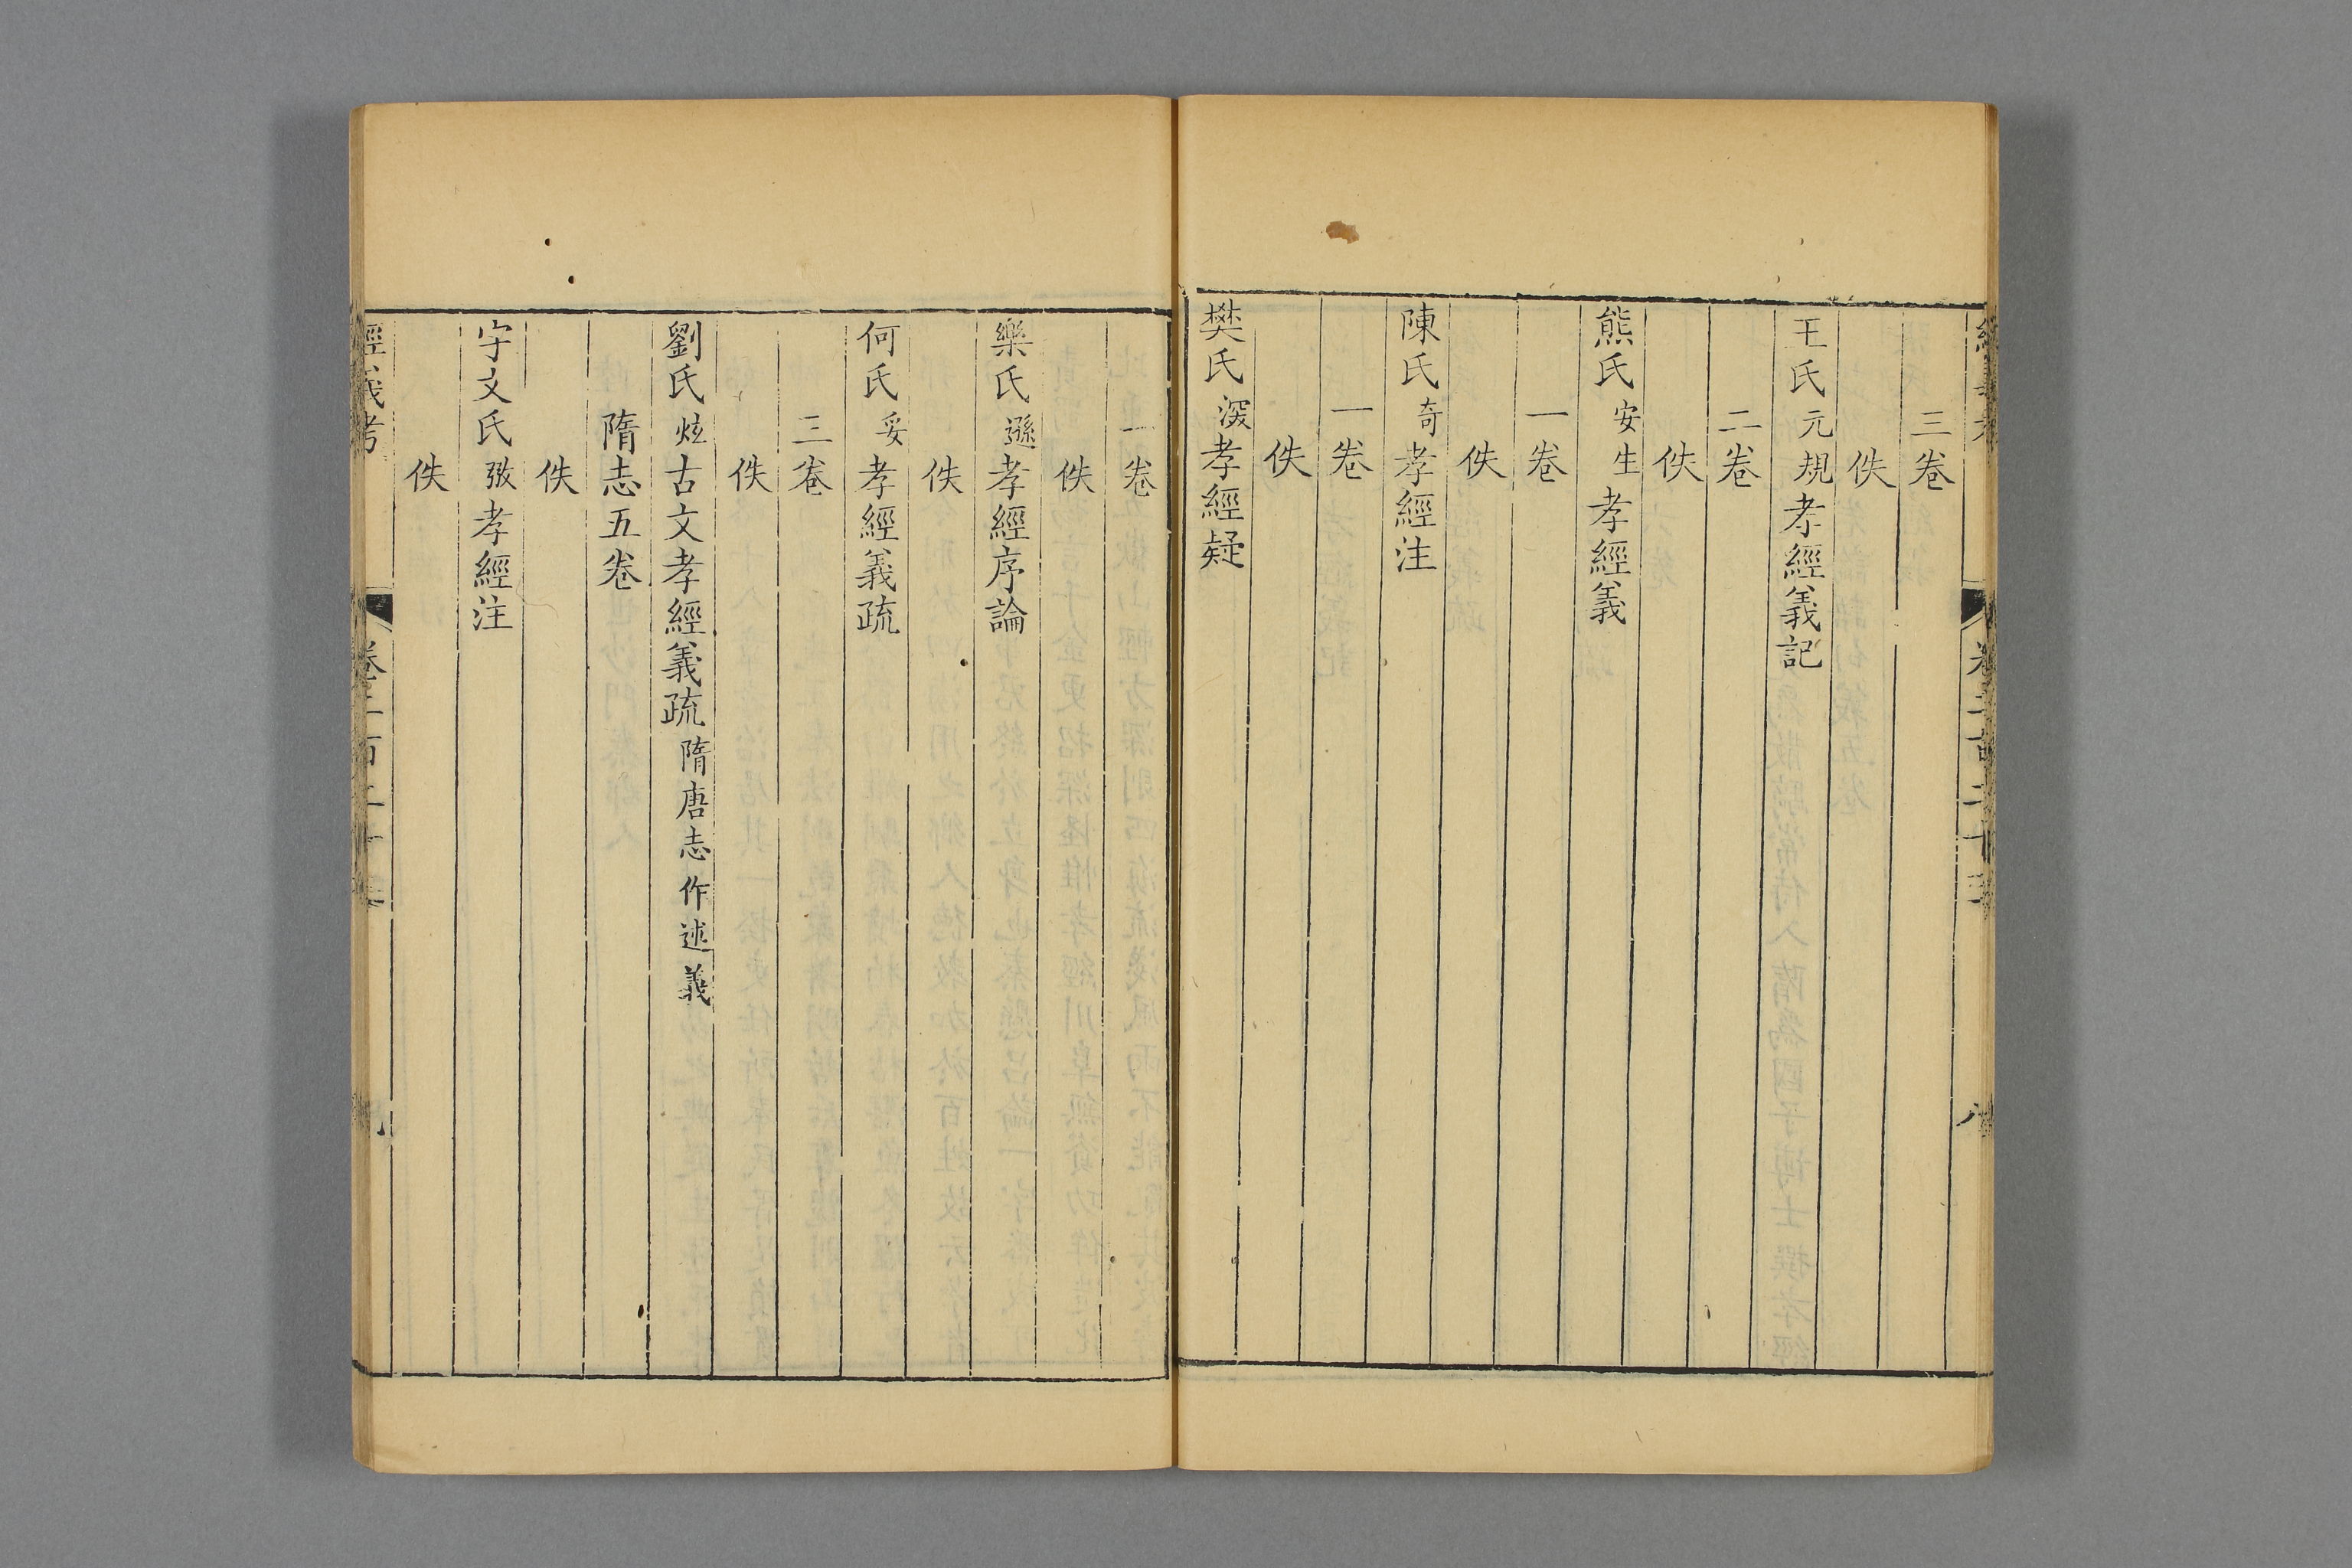 三卷
佚
王氏元規孝經義記
二卷
佚
熊氏安生孝經義
一卷
佚
陳氏奇孝經注
一卷
佚
樊氏深孝經疑
一卷
佚
樂氏遜孝經序論
佚
何氏妥孝經義疏
三卷
佚
劉氏炫古文孝經義疏隋唐志作述義
隋志五卷
佚
宇文氏㢸孝經注
佚
經義考